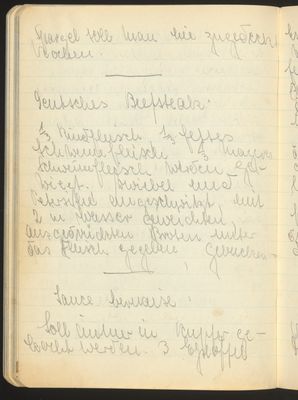 Spargel soll man nie zugedeckt
kochen.
Deutsches Beefsteak.
1/3 Rindfleisch 1/3 fettes
Schweinefleisch 1/3 mageres
Schweinfleisch werden ge-
wiegt. Zwiebel und
Petersilie angeschwitzt, mit
2 in Wasser geweichten,
ausgedrückten Broten unter
das Fleisch gegeben.
Sauce bernaise:
Soll immer in Kupfer ge-
kocht werden. 3